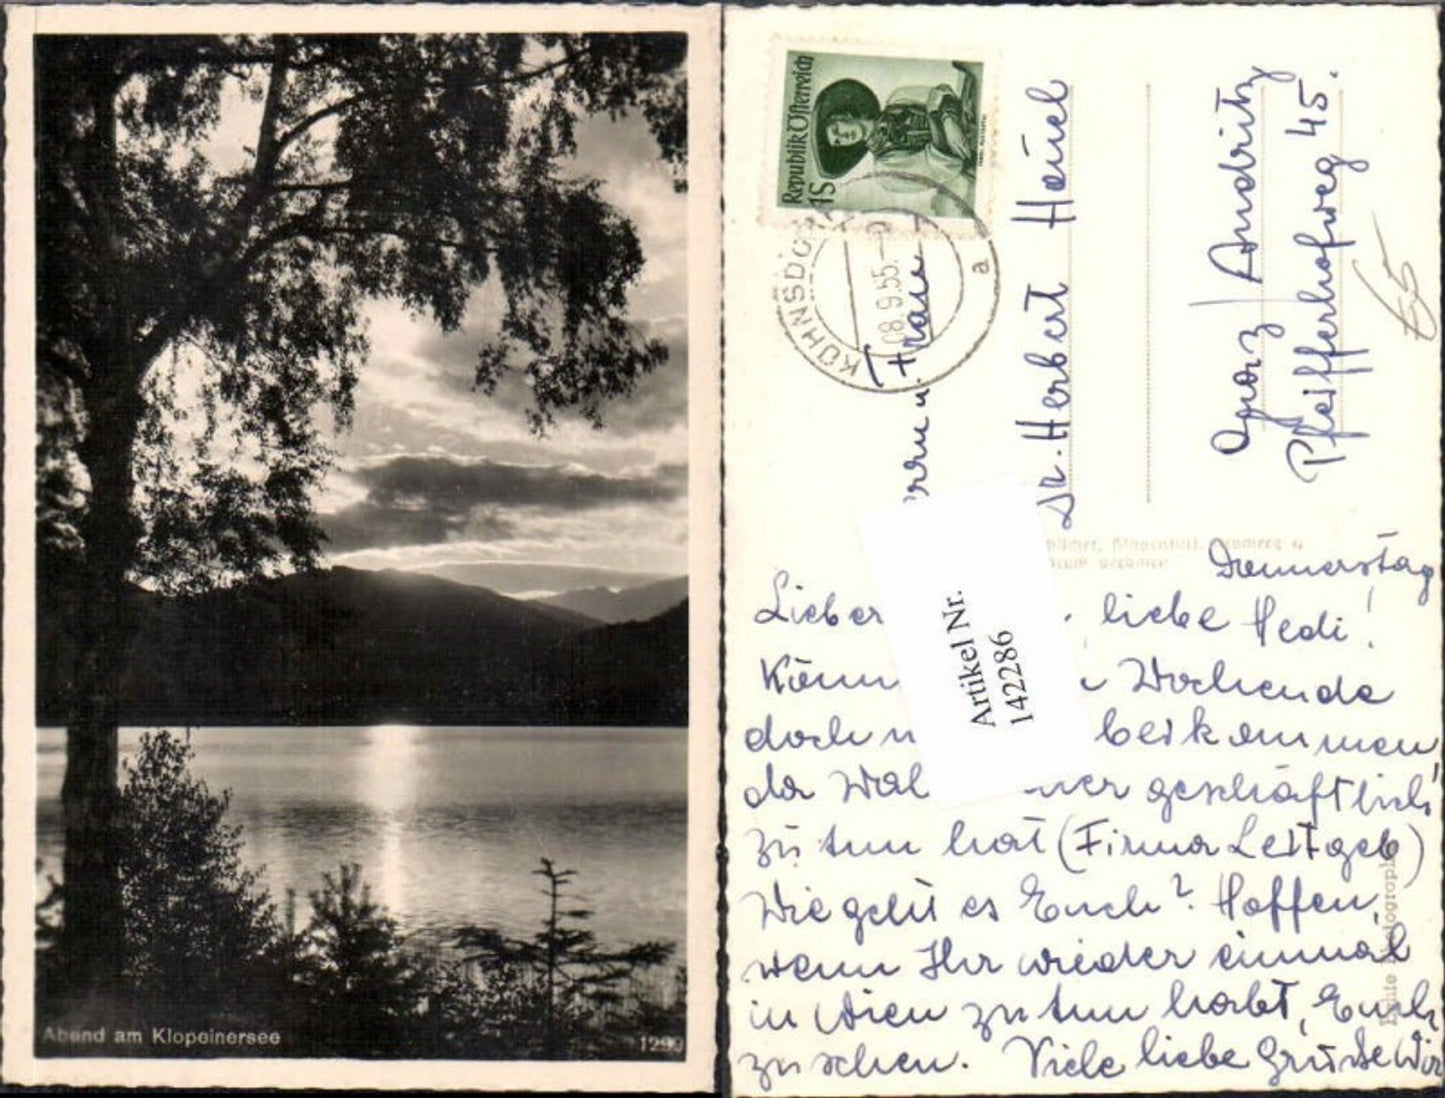 Abend am Klopeinersee
1299
Republik Österreich
1S
KÜHNSDO
08.9.55.
a
u. Frau
Dr. Herbert
Graz / Andritz
Pfeifferhofweg 45.
Artikel Nr.
142286
Donnerstag
Lieber liebe Hedi!
Wochende
doch beikommen,
da geschäftlich
zu tun hat (Firma Leitgeb)
Wie geht es Euch? Hoffen,
wenn Ihr wieder einmal
in Wien zu tun habt, Euch
zu sehen. Viele liebe Grüße Wir
Echte